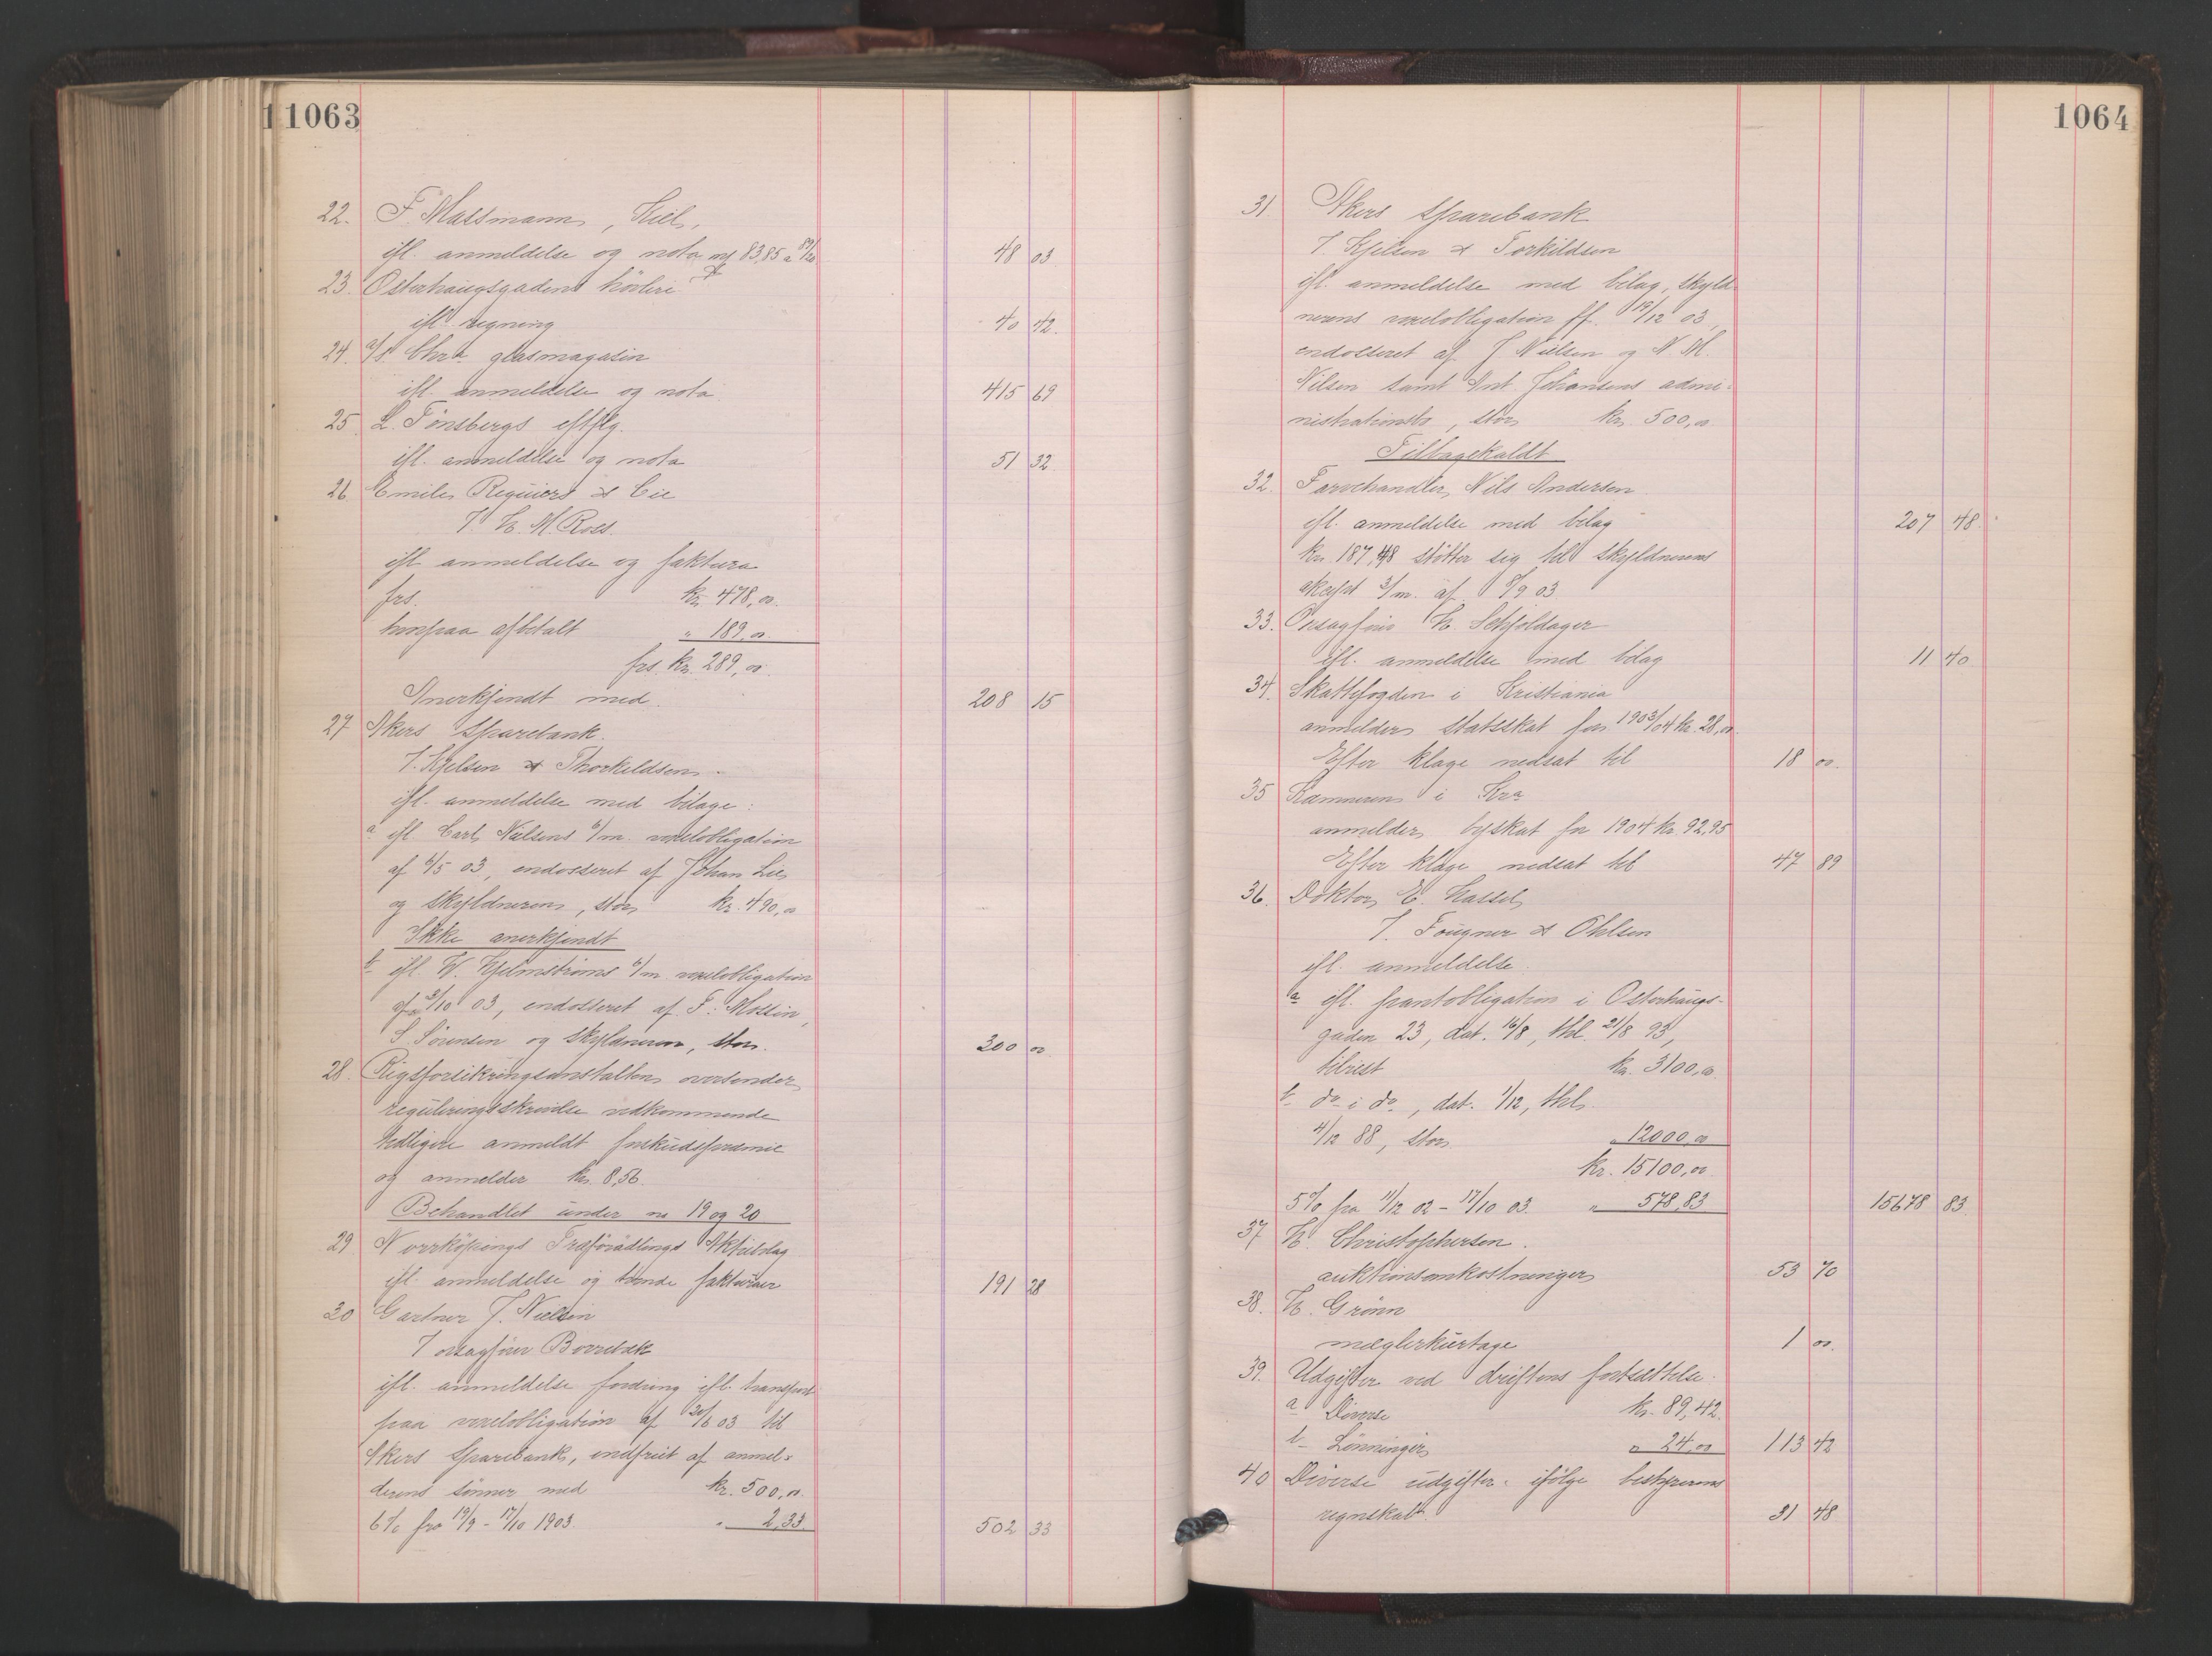 11063
22. F. Massmann, Kiel,
ifl. anmeldelse og nota mk 83,85 a 89/20 48 03
23. Osterhaugsgadens høvleri
ifl. regning 40 42.
24. A/s. Chra glasmagasin
ifl. anmeldelse og nota. 415 69
25. L. Tønsbergs eftflg.
ifl. anmeldelse og nota 51 32
26. Emile Requiers & Cie
V. H. M. Roes.
ifl. anmeldelse og faktura
frs. kr. 478,00.
herpaa afbetalt " 189,00.
frs. kr. 289,00.
Anerkjendt med. 208 15
27 Akers Sparebank.
V. Kjelsen & Thorkildsen.
ifl. anmeldelse med bilage:
a ifl. Carl Nielsens 6/m. vexelobligation
af 6/5 03, endosseret af Johan Lie
og skyldneren, stor kr. 490,00
Ikke anerkjendt
b ifl. W. Hjelmstrøms 6/m. vexelobligation
af 3/10 03, endosseret af F. Mossin,
S. Sørensen og skyldneren, stor. 300 00.
28. Rigsforsikringsanstalten oversender
reguleringsskrivelse vedkommende
tidligere anmeldt forskudspræmie
og anmelder kr. 8,56.
Behandlet under no 19 og 20
29. Norrköpings Träförädlings Aktiebolag
ifl. anmeldelse og tvende fakturaer 191 28
30 Gartner J. Nielsen
V. orsagfører Borrebæk
ifl. anmeldelse fordring ifl. transport
paa vexelobligation af 20/6 03 til
Akers Sparebank, indfriet af anmel-
derens sønner med kr. 500,00.
6% fra 19/9 - 17/10 1903. " 2,33. 502 33
1064
31 Akers Sparebank
V. Kjelsen & Torkildsen
ifl. anmeldelse med bilag, skyld-
nerens vexelobligation pf. 19/12 03,
endosseret af J. Nielsen og N. M.
Nilsen samt Ant. Johansens admi-
nistrationsbo, stor kr. 500,00
Tilbagekaldt
32. Farvehandler Nils Andersen.
ifl. anmeldelse med bilag 207 48.
kr. 187,48 støtter sig til skyldnerens
aksept 3/m. af /9 03
33. Ovsagfører H. Schjoldager
ifl. anmeldelse med bilag 11 40
34. Skattefogden i Kristiania
anmelder statsskat for 1903/04 kr. 28,00.
Efter klage nedsat til 18 00.
35 Kæmneren i Kra
anmelder byskat for 1904 kr. 92,95
Efter klage nedsat til 47 89
36. Doktor E. Hassel
V. Fougner & Ohlsen
ifl. anmeldelse.
a ifl. pantobligation i Osterhaugs-
gaden 23, dat. 16/8, thl. 21/8 93,
tilrest kr. 3100,00.
b do i do, dat. 1/12, thl.
4/12 88, stor " 12000,00
kr. 15100,00
5% fra 11/12 02 - 17/10 03. " 578,83 15678 83.
37 H. Christophersen.
auktionsomkostninger 53 70
38. H. Grønn
mæglerkurtage 1 00.
39. Udgifter ved driftens fortsættelse.
a Diverse kr. 89,42.
b Lønninger " 24,00 113 42
40 Diverse udgifter ifølge bestyrerens
regnskab. 31 48